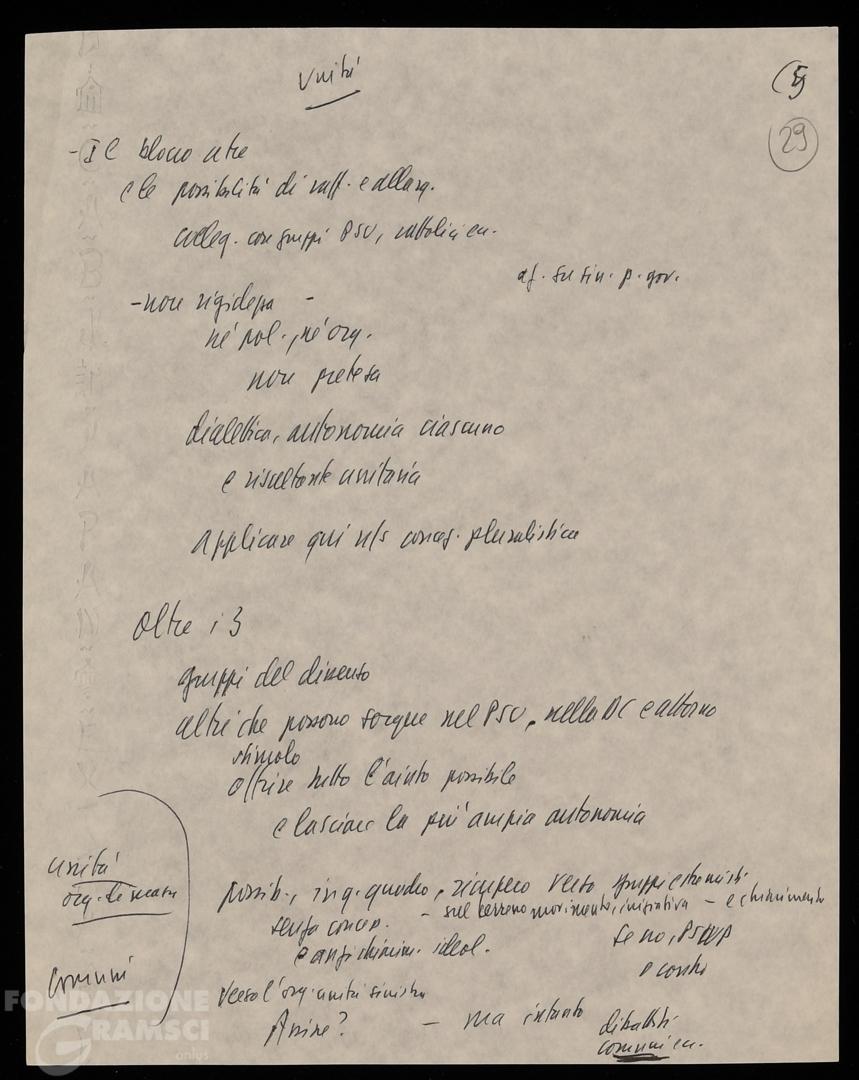 Unità
(5
29
- Il blocco
e le possibilità di raff. e allarg.
colleg. con gruppi PSU, cattolici ecc.
af. su sin. p. gov.
- non rigidezza -
né pol., né org.
non pretesa
dialettica, autonomia ciascuno
e risultante unitaria
applicare qui ns concez. pluralistica
Oltre i 3
gruppi del dissenso
altri che possono sorgere nel PSU, nella DC e attorno
stimolo
offrire tutto l'aiuto possibile
e lasciare la più ampia autonomia
unità
org. di massa
Comuni
possib., in q. quadro, recupero verso gruppi estremisti
senza conces. - sul terreno movimento, iniziativa - e chiarimento
e anzi chiarim. ideol.
se no, PSIUP
e contro
verso l'org. unità sinistra
- ma intanto
dibattiti
comuni ecc.
FONDAZIONE
GRAMSCI
onlus